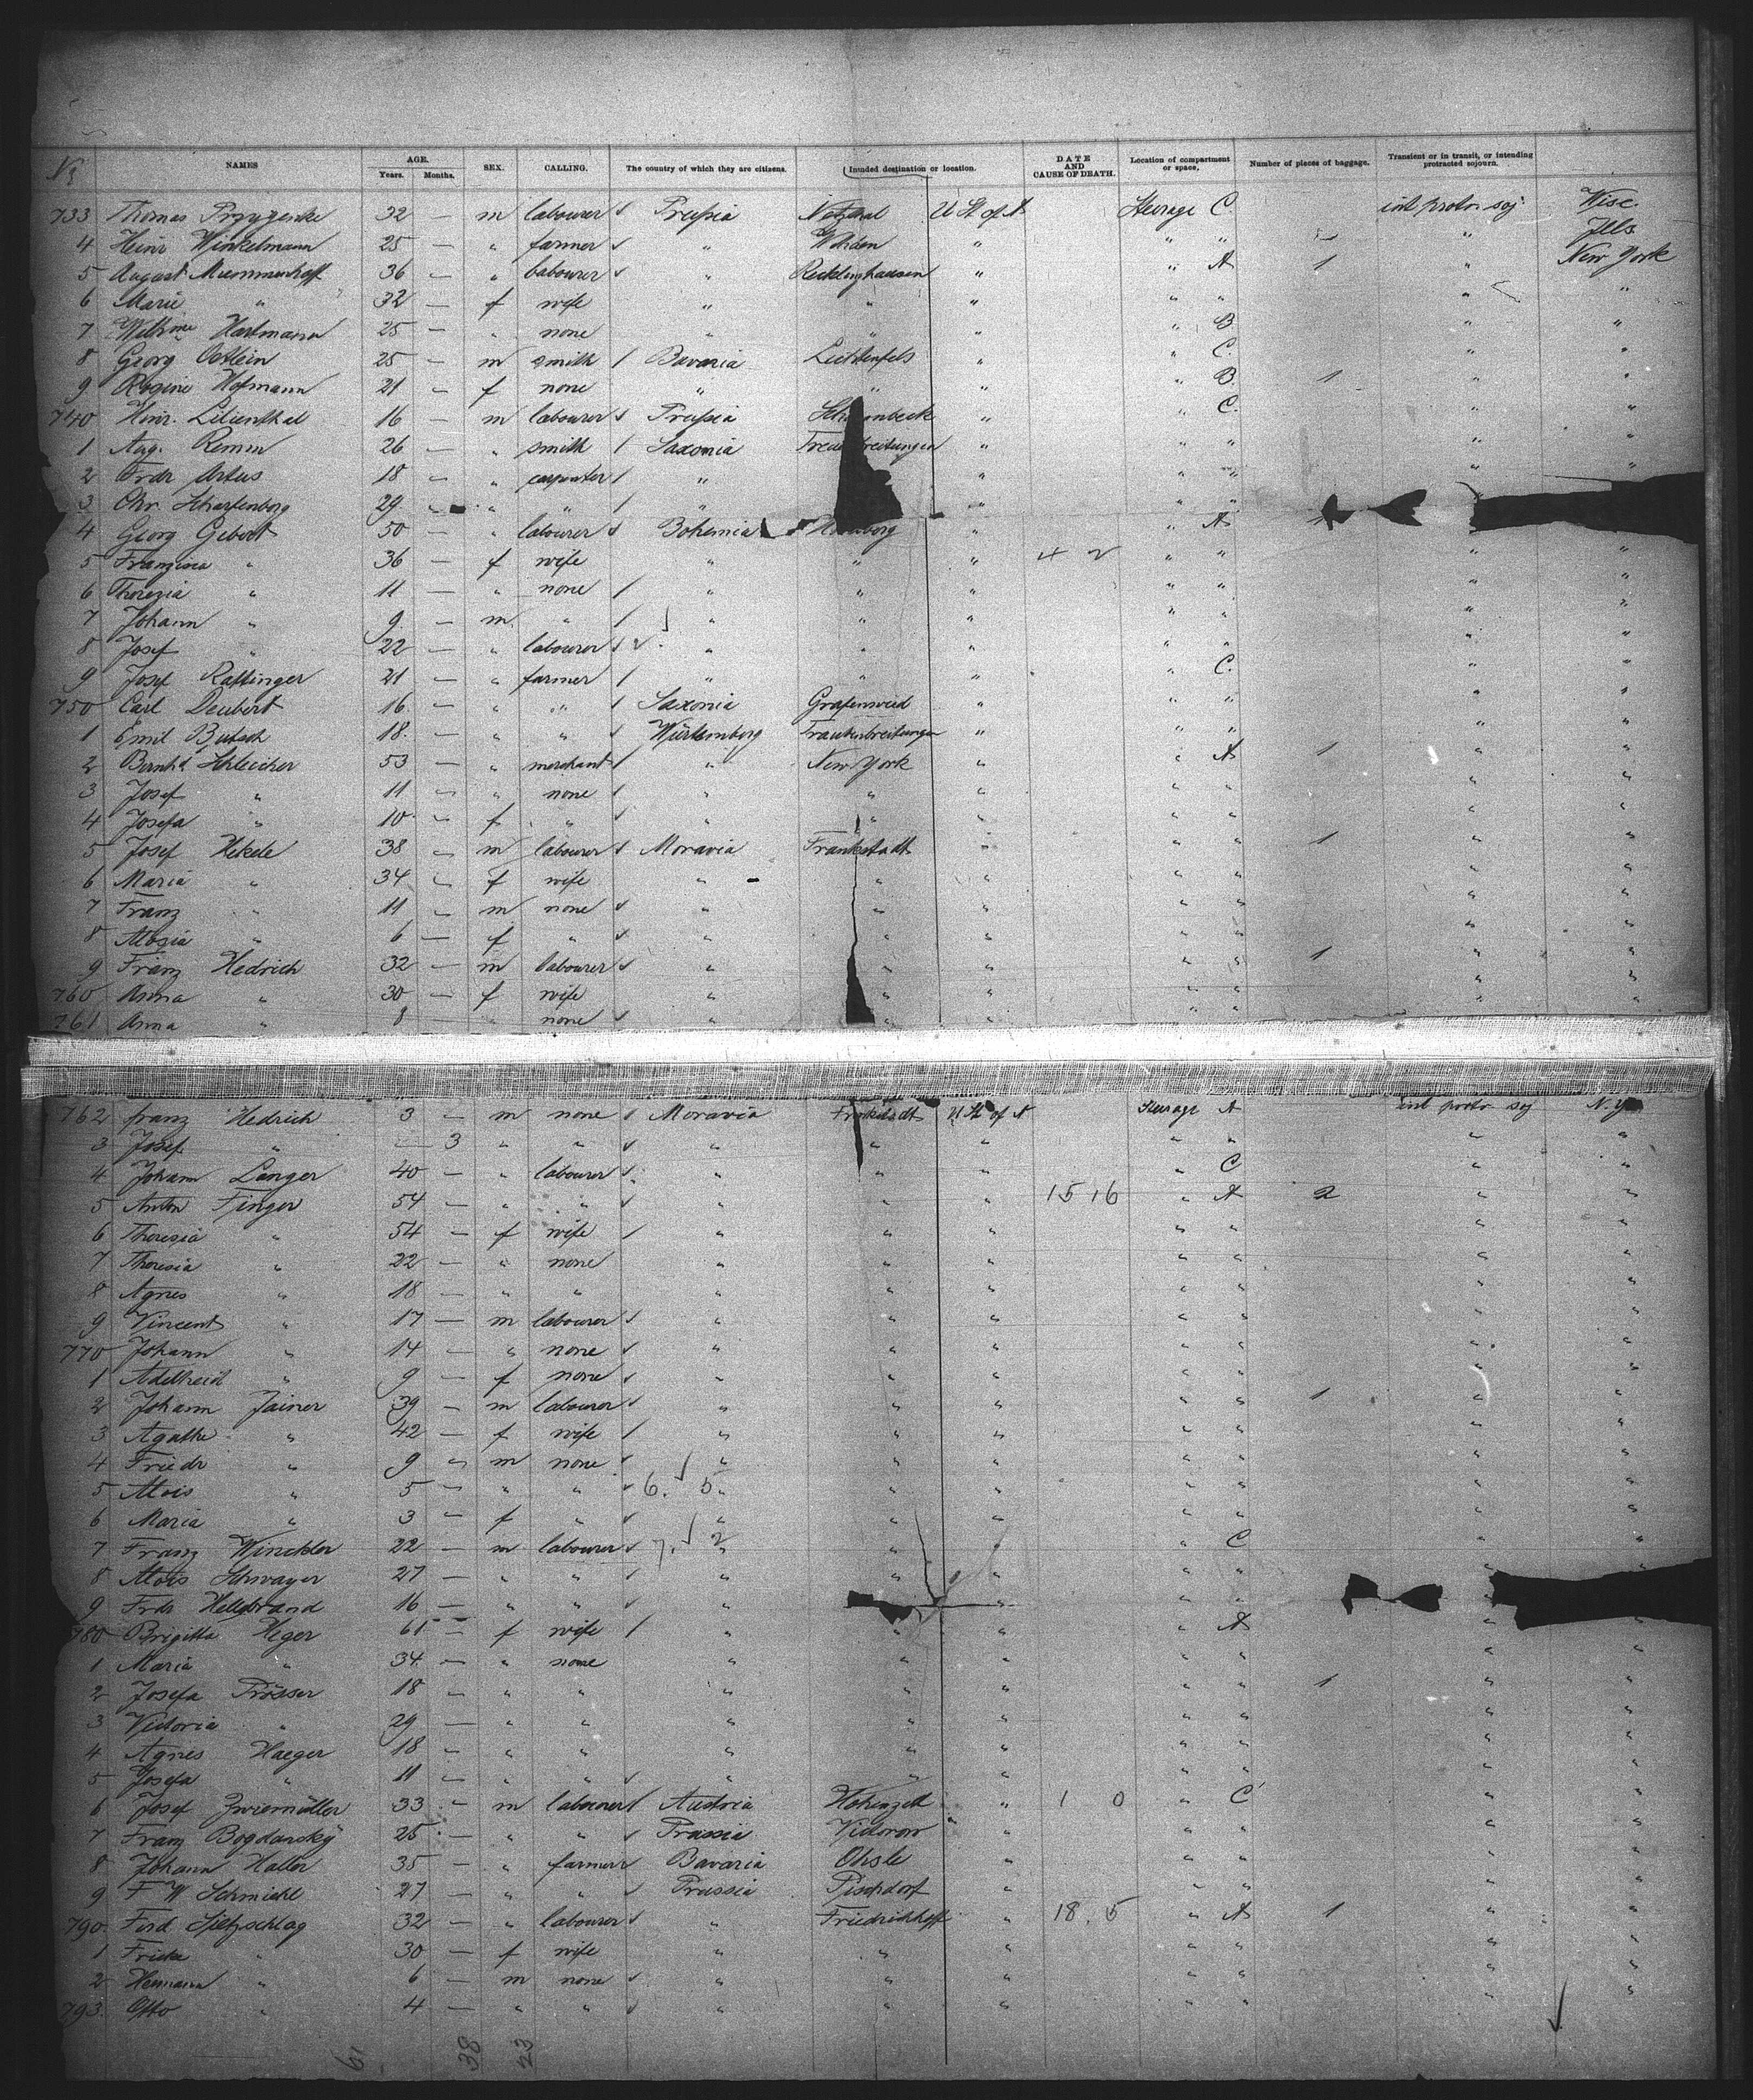 No NAMES AGE. Years. Months. SEX. CALLING. The country of which they are citizens. Inunded destination or location. DATE AND CAUSE OF DEATH. Location of compartment or space. Number of pieces of baggage. Transient or in transit, or intending protracted sojourn.
733 Thomas 32 — m labourer Prussia U St of A Steerage C. int protr. soj Wisc.
4 Heinr Winkelmann 25 — " farmer " " " " " Ills
5 August Mummenhoff 36 — " labourer " Recklinghausen " " A 1 " New York
6 Marie " 32 — f wife " " " " " " "
7 Hartmann 25 — " none " " " " B " "
8 Georg 25 — m smith Bavaria Lichtenfels " " C. " "
9 Regine Hofmann 21 — f none " " " " B 1 " "
740 Heinr. Lilienthal 16 — m labourer Prussia " " C. " "
1 Aug. 26 — " smith Saxonia " " " " "
2 Frdr Artus 18 — " carpenter " " " " " "
3 Chr. Scharfenberg 29 " " " " " " "
4 Georg Gebert 50 — " labourer Bohemia " " A
5 Franzisca " 36 — f wife " " " 4 2 " " " "
6 Theresia " 11 — " none " " " " " " "
7 Johann " 9 — m " " " " " " " "
8 Josef " 22 — " labourer " " " " " " "
9 Josef Rattinger 21 — " farmer " " " " C. " "
750 Carl Deubert 16 — " " Saxonia " " " " "
1 Emil 18 — " " Würtemberg Frauenbreitungen " " " " "
2 Bernhd Schleicher 53 — " merchant " New York " " A 1 " "
3 Josef " 11 — " none " " " " " " "
4 Josefa " 10 — f " " " " " " " "
5 Josef Hekele 38 — m labourer Moravia Frankstadt " " " 1 " "
6 Maria " 34 — f wife " " " " " " "
7 Franz " 11 — m none " " " " " " "
8 Aloisia " 6 — f " " " " " " " "
9 Franz Hedrich 32 — m labourer " " " " " 1 " "
760 Anna " 30 — f wife " " " " " " "
761 Anna " 8 — " none " " " " " " "
762 franz Hedrich 3 — m none Moravia Frankstadt U St of A Steerage A int protr soj N. Y.
3 Josef " — 3 " " " " " " " " "
4 Johann Langer 40 — " labourer " " " " C " "
5 Anton Finger 54 — " " " " " 15 16 " A 2 " "
6 Theresia " 54 — f wife " " " " " " "
7 Theresia " 22 — " none " " " " " " "
8 Agnes " 18 — " " " " " " " " "
9 Vincent " 17 — m labourer " " " " " " "
770 Johann " 14 — " none " " " " " " "
1 Adelheid " 9 — f none " " " " " " "
2 Johann Jainer 39 — m labourer " " " " " 1 " "
3 Agathe " 42 — f wife " " " " " " "
4 Friedr " 9 — m none " " " " " " "
5 Alois " 5 — " " 6. 5 " " " " " " "
6 Maria " 3 — f " " " " " " " "
7 Franz Winckler 22 — m labourer 7. 2 " " " " C " "
8 Alois Schwayer 27 — " " " " " " " " "
9 Frdr Hellebrand 16 — " " " " " " "
780 Brigitta Heger 61 — f wife " " " " A "
1 Maria " 34 — " none " " " " " " "
2 Josefa Prösser 18 — " " " " " " " 1 " "
3 Victoria " 29 — " " " " " " " " "
4 Agnes Haeger 18 — " " " " " " " " "
5 Josefa " 11 — " " " " " " " " "
6 Josef Zwiemüller 33 — m labourer Austria Hohenzell " 1 0 " C " "
7 Franz Bogdansky 25 — " " Prussia " " " " "
8 Johann Haller 35 — " farmer Bavaria " " " " "
9 F W Schmiehl 27 — " " Prussia Pischdorf " " " " "
790 Ferd Sietzschlag 32 — " labourer " " 18. 5 " A 1 " "
1 " 30 — f wife " " " " " " "
2 Hermann " 6 — m none " " " " " " "
793 Otto " 4 — " " " " " " " " "
61 38 23